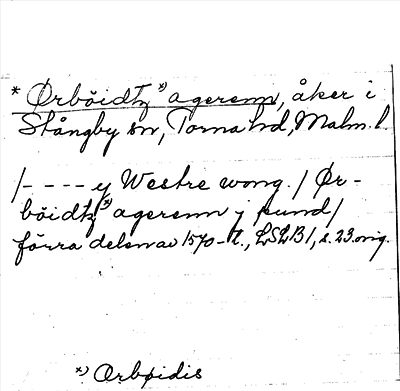 * Ørböidtz *) agerenn, åker i
Stångby sn, Torna hd, Malm. l.
/ - - - - ej Westre wong. / Ør-
böidtz *) agerenn j pund /
förra delen av 1570-t., LSLB 1, s. 23. orig.
*) Ørbøidis